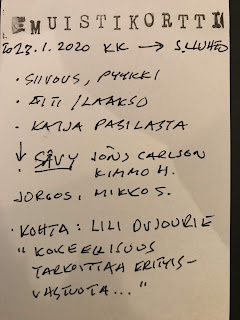 MUISTIKORTTI
23.1.2020 KK → S.LUHTO
• SIIVOUS, PYYKKI
• ÄITI / LAAKSO
• KATJA PASILASTA
↓ SÄVY JONS CARLSON
KIMMO H.
JORGOS, MIKKO S.
• KOHTA: LILI DUJOURIE
"KOKEELLISUUS
TARKOITTAA ERITYIS-
VASTUUTA..."